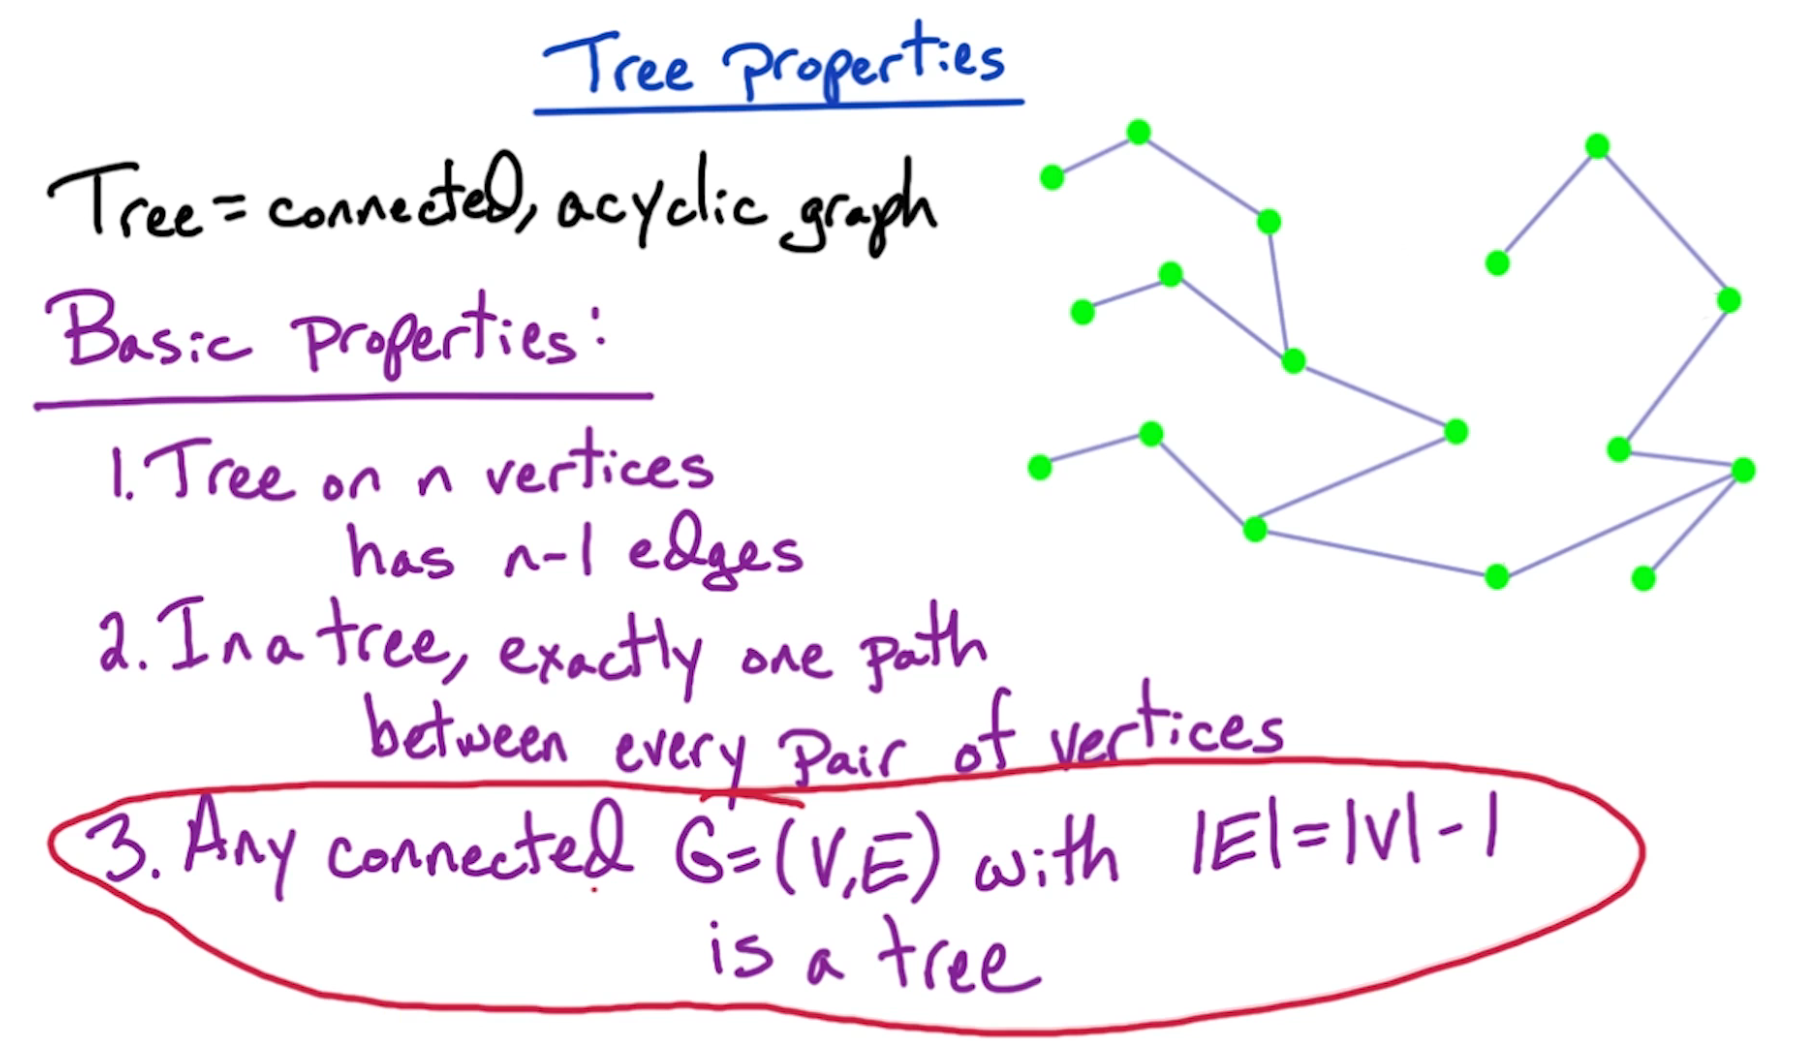 Tree Properties
Tree = connected, acyclic graph
Basic Properties:
1. Tree on n vertices
has n-1 edges
2. In a tree, exactly one path
between every pair of vertices
3. Any connected G=(V,E) with |E|=|V|-1
is a tree